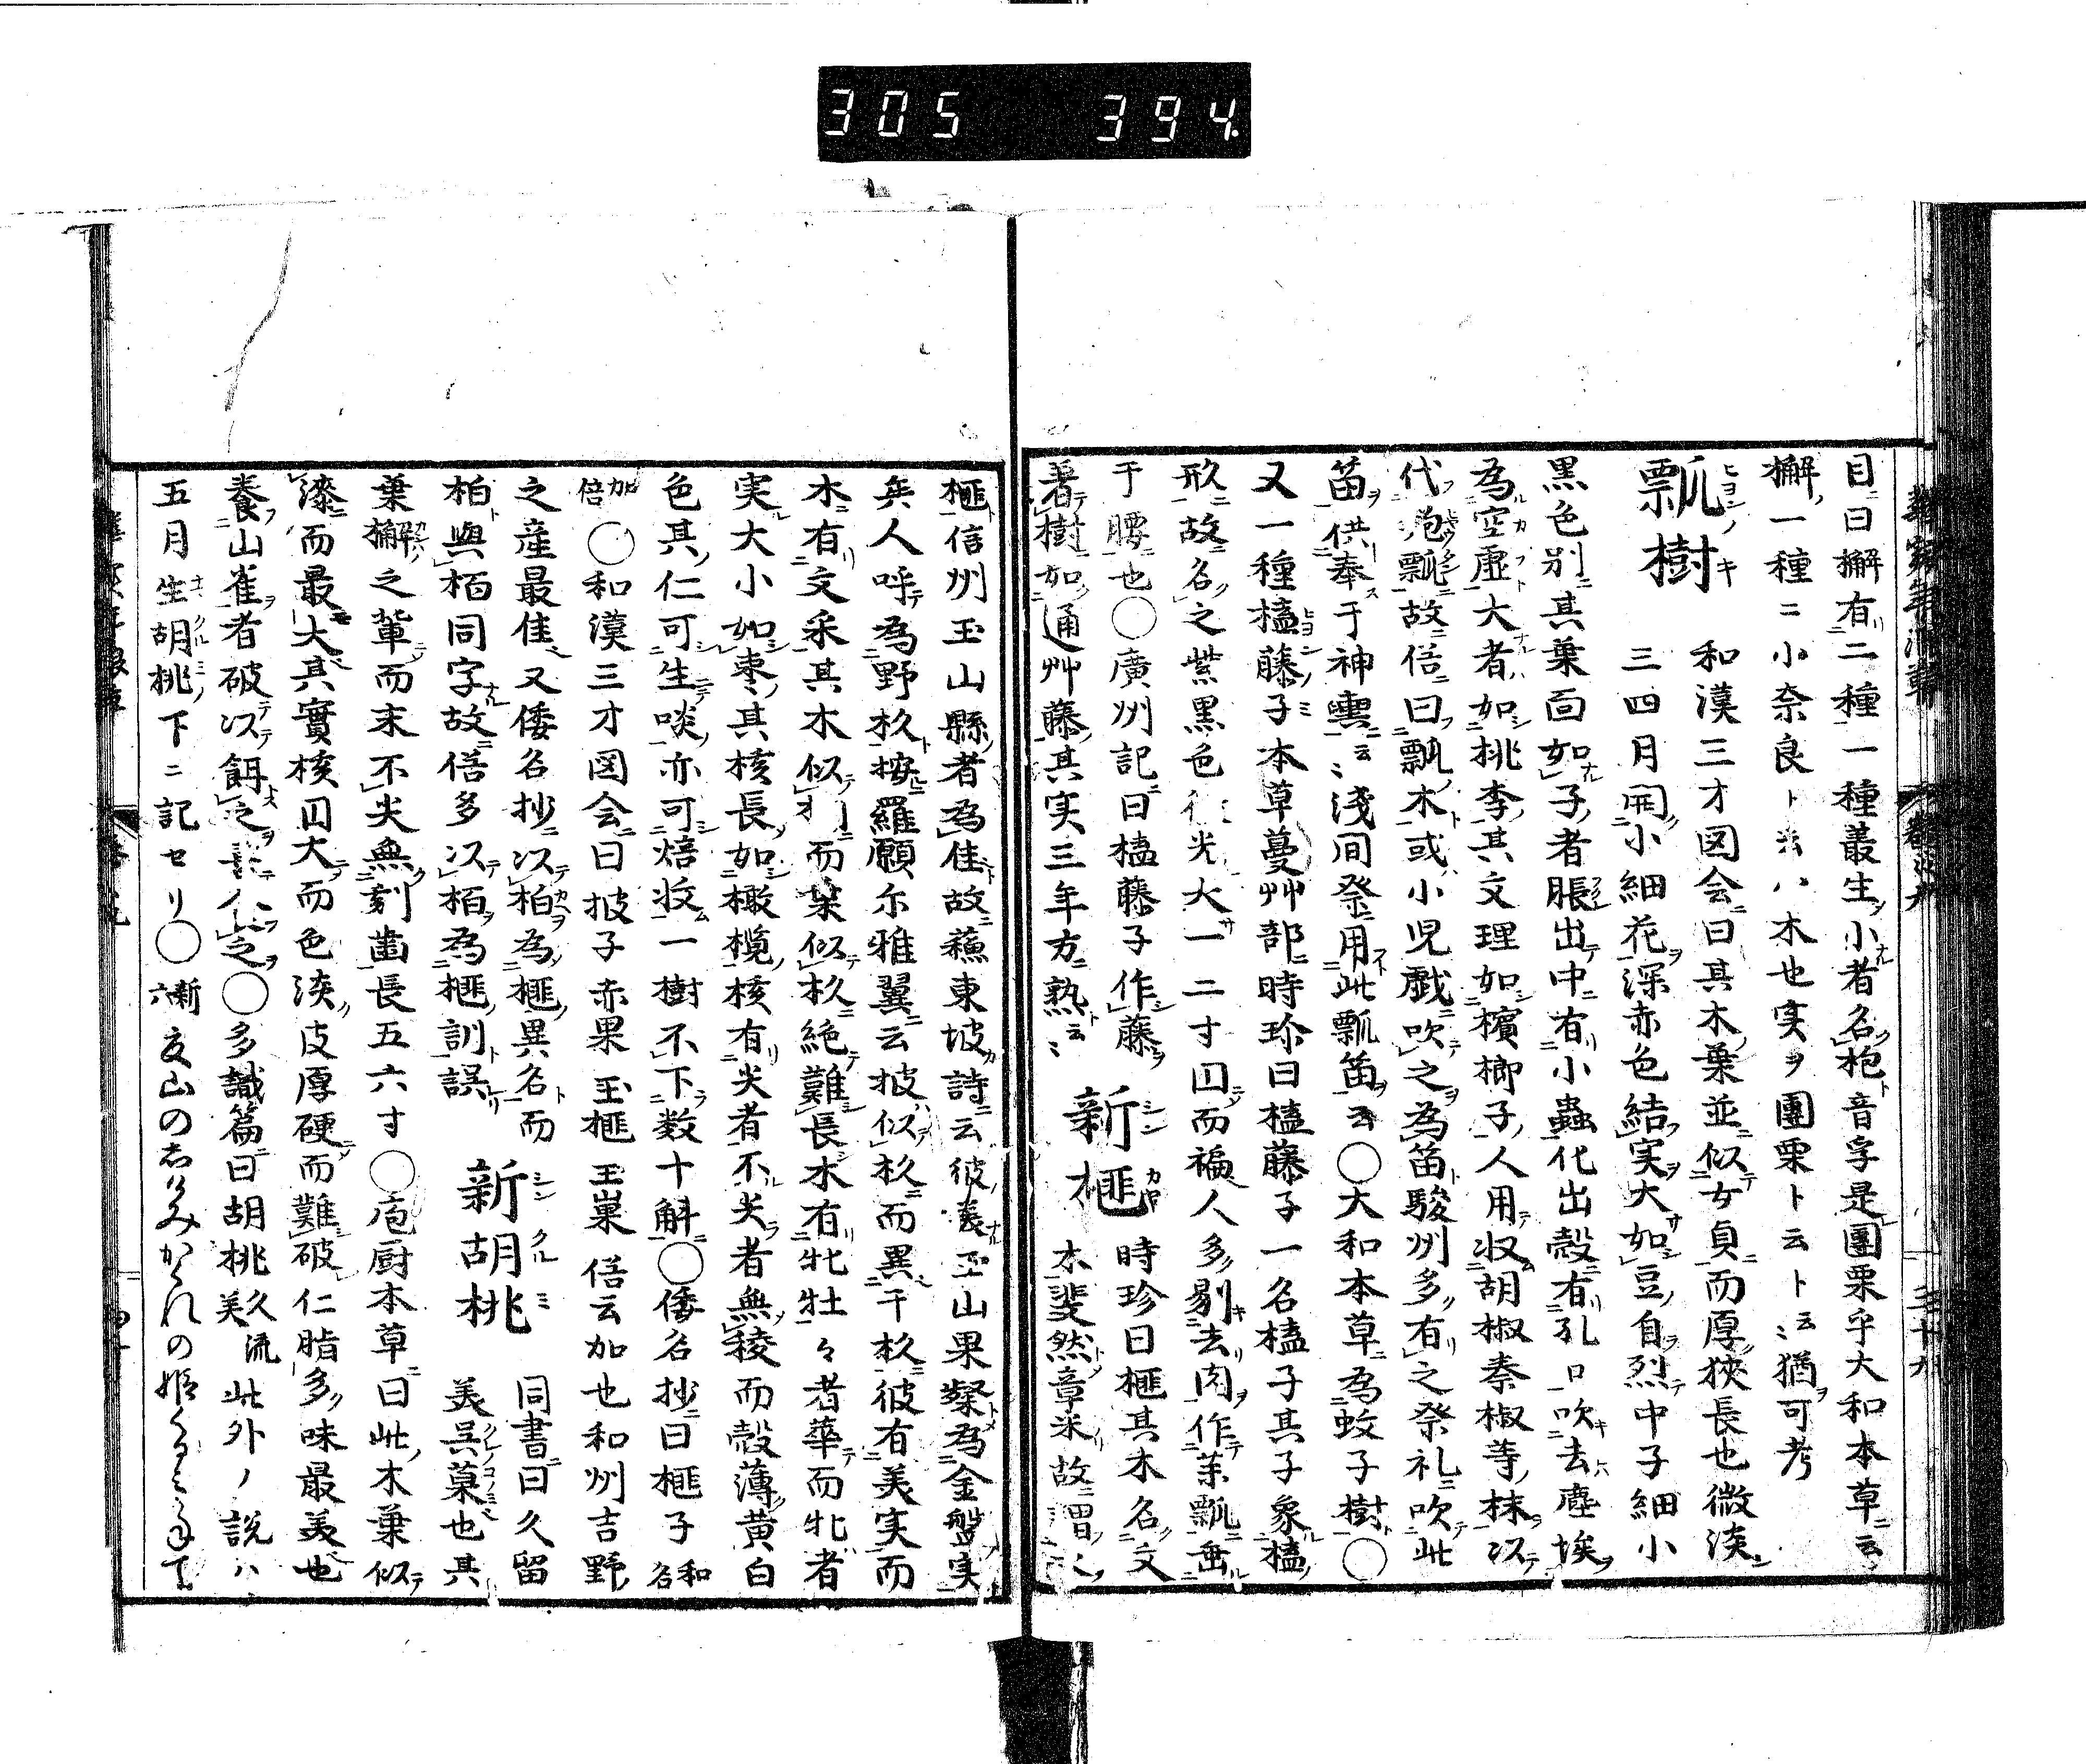 305 394
目曰檞有二種一種叢生小者名枹音孚是團栗乎大和本草云
檞一種ニ小奈良ト云ハ木也実ヲ團栗ト云ト云〻猶可考
瓢樹 和漢三才図会曰其木葉並似女貞而厚狹長也微淡
三四月開小細花深赤色結実大如豆自烈中子細小
黒色別其葉面如子者脹出中有小蟲化出殼有孔口吹去塵埃
為空虚大者如桃李其文理如檳榔子人用収胡椒秦椒等抹以
代匏瓢故俗曰瓢木或小児戯吹之為笛駿州多有之祭礼吹此
笛供奉于神輿云〻浅間祭用此瓢笛云〇大和本草為蚊子樹〇
又一種榼藤子本草蔓艸部時珍曰榼藤子一名榼子其子象榼
形故名之紫黒色 光大一二寸囙而褊人多剔去肉作薬瓢垂
于腰也〇廣州記曰榼藤子作藤
著樹如通艸藤其実三年方熟云〻 新榧 時珍曰榧其木名文
木斐然章采故謂
榧信州玉山縣者為佳故蘓東坡詩云彼 玉山果粲為金盤実
兵人呼為野杉按羅願尓雅翼云柀似杉而異于杉彼有美実而
木有文采其木似 而葉似杉絶難長木有牝牡々者華而牝者
実大小如棗其核長如橄欖核有尖者不尖者無稜而殼薄黄白
色其仁可生啖亦可焙收一樹不下数十斛〇倭名抄曰榧子 和名
加倍 〇和漢三才図会曰柀子 赤果 玉榧 玉巣 俗云加也和州吉野
之産最佳又倭名抄以栢為榧異名而
柏與栢同字故俗多以栢為榧訓誤 新胡桃 同書曰久留
美呉菓也其
葉檞之輩而末不尖無刻齒長五六寸〇庖厨本草曰此木葉似
漆而最大其實核囙大而色淡皮厚硬而難破仁脂多味最美也
養山雀者破以餌之 〇多識篇曰胡桃 久流美 此外ノ説ハ
五月生胡桃下ニ記セリ〇 新六